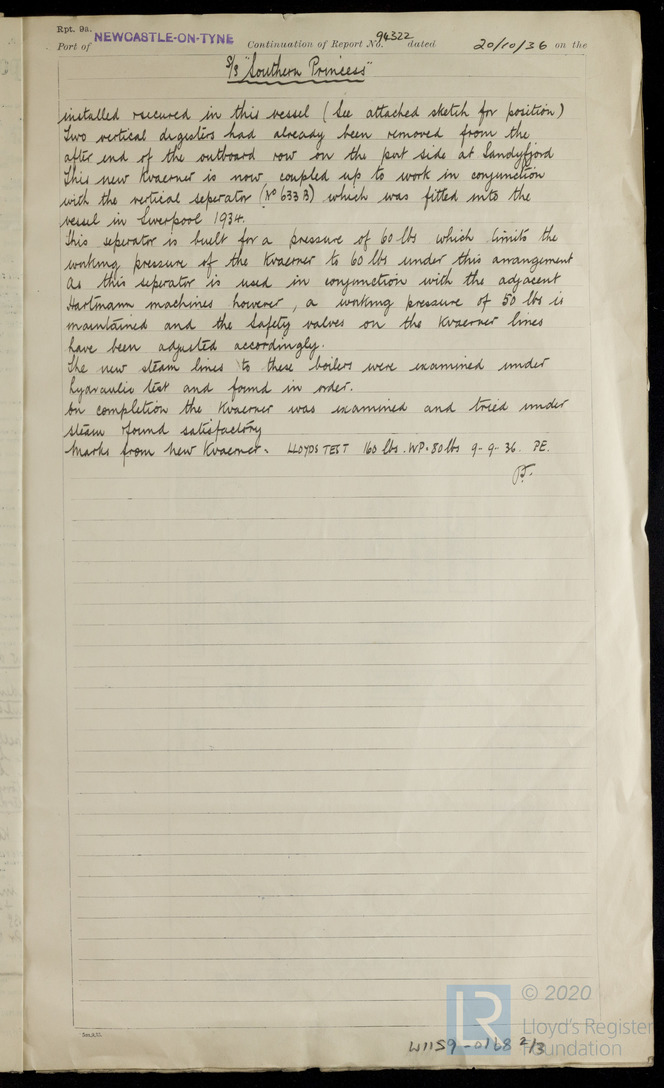 Rpt. 9a.
Port of NEWCASTLE-ON-TYNE Continuation of Report No. 94322 dated 20/10/36 on the
S/S "Southern Princess"
installed & secured in this vessel (See attached sketch for position)
Two vertical digesters had already been removed from the
after end of the outboard row on the port side at Sandyfjord
This new Kvaerner is now coupled up to work in conjunction
with the vertical seperator (No 633 B) which was fitted into the
vessel in Liverpool 1934.
This seperator is built for a pressure of 60 lbs which limits the
working pressure of the Kvaerner to 60 lbs under this arrangement
As this seperator is used in conjunction with the adjacent
Hartmann machines however, a working pressure of 50 lbs is
maintained and the Safety valves on the Kvaerner lines
have been adjusted accordingly.
The new steam lines to these boilers were examined under
hydraulic test and found in order.
On completion the Kvaerner was examined and tried under
steam & found satisfactory
Marks from New Kvaerner. LLOYDS TEST 160 lbs. WP. 80 lbs 9-9-36. PE.
LR
© 2020
Lloyd's Register
Foundation
W1159-0168 2/3